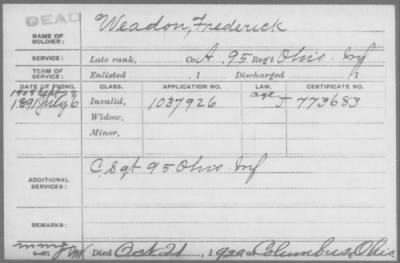 DEAD
NAME OF SOLDIER: Weadon, Frederick
SERVICE: Late rank, Co. A, 95 Reg't Ohio Inf
TERM OF SERVICE: Enlisted , 1 Discharged , 1
DATE OF FILING. CLASS. APPLICATION NO. LAW. CERTIFICATE NO.
age
1891 July 6 Invalid, 1037926 J 773683
Widow,
Minor,
ADDITIONAL SERVICES: C, Sgt 95 Ohio Inf
REMARKS:
Died Oct 21, 1920 at Columbus, Ohio